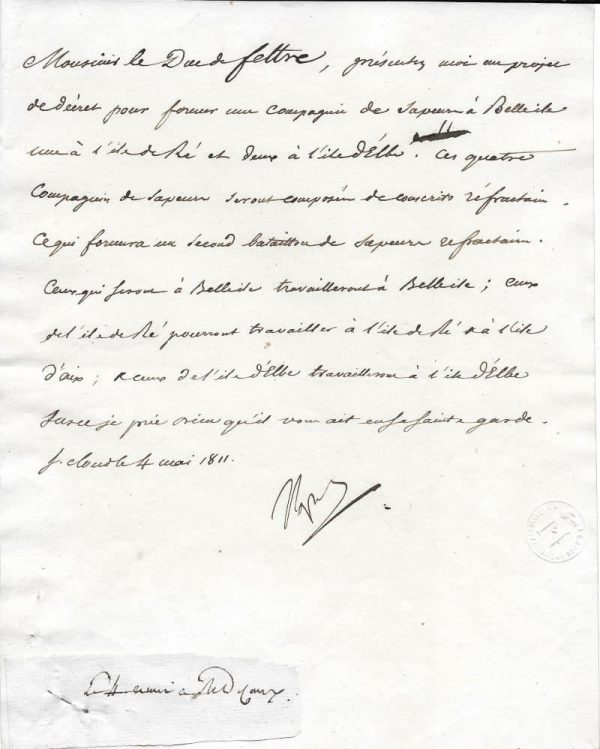 Monsieur le Duc de feltre, présentez moi un projet
de décret pour former une Compagnie de Sapeurs à Belleile
une à l'ile de Ré et deux à l'ile d'Elbe. Ces quatre
Compagnies de Sapeurs seront composées de conscrits réfractaires.
Ce qui formera un second bataillon de Sapeurs refractaires.
Ceux qui seront à Belleile travailleront à Belleile ; ceux
de l'ile de Ré pourront travailler à l'ile de Ré & à l'ile
d'aix ; & ceux de l'ile d'Elbe travailleront à l'ile d'Elbe
Sur ce je prie Dieu qu'il vous ait en sa sainte garde.
St. cloud le 4 mai 1811.
Np